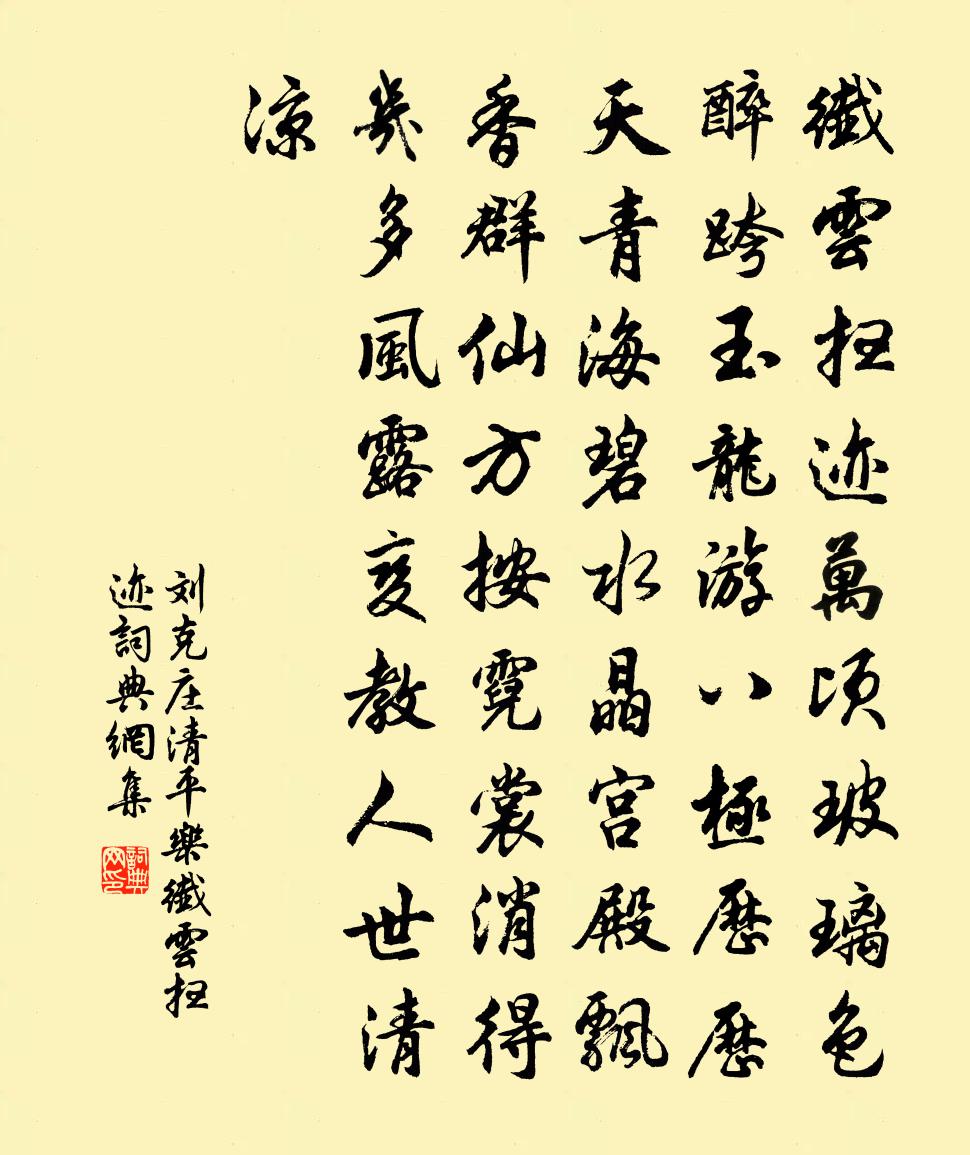 纖雲扫迹萬頃玻璃色
醉跨玉龍游八極歷歷
天青海碧水晶宮殿飄
香群仙方按霓裳消得
幾多風露变教人世清
涼
刘克庄清平樂纖雲扫
迹詞典網集
詞典網印